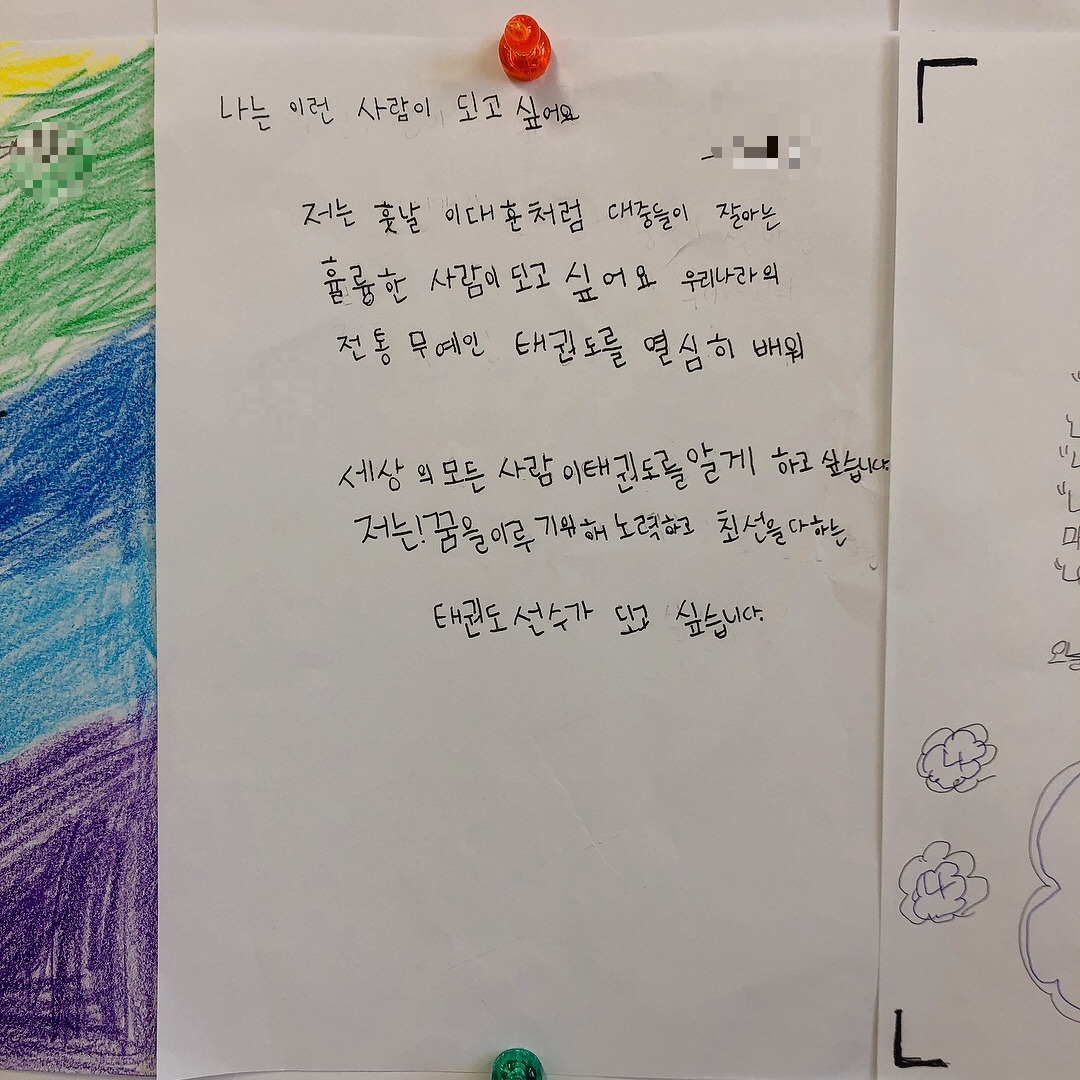 나는 이런 사람이 되고 싶어요
저는 훗날 이대훈처럼 대중들이 잘아는
훌륭한 사람이 되고 싶어요 우리나라의
전통 무예인 태권도를 열심히 배워
세상의 모든 사람이 태권도를 알게 하고 싶습니다.
저는! 꿈을 이루기위해 노력하고 최선을 다하는
태권도 선수가 되고 싶습니다.
오늘